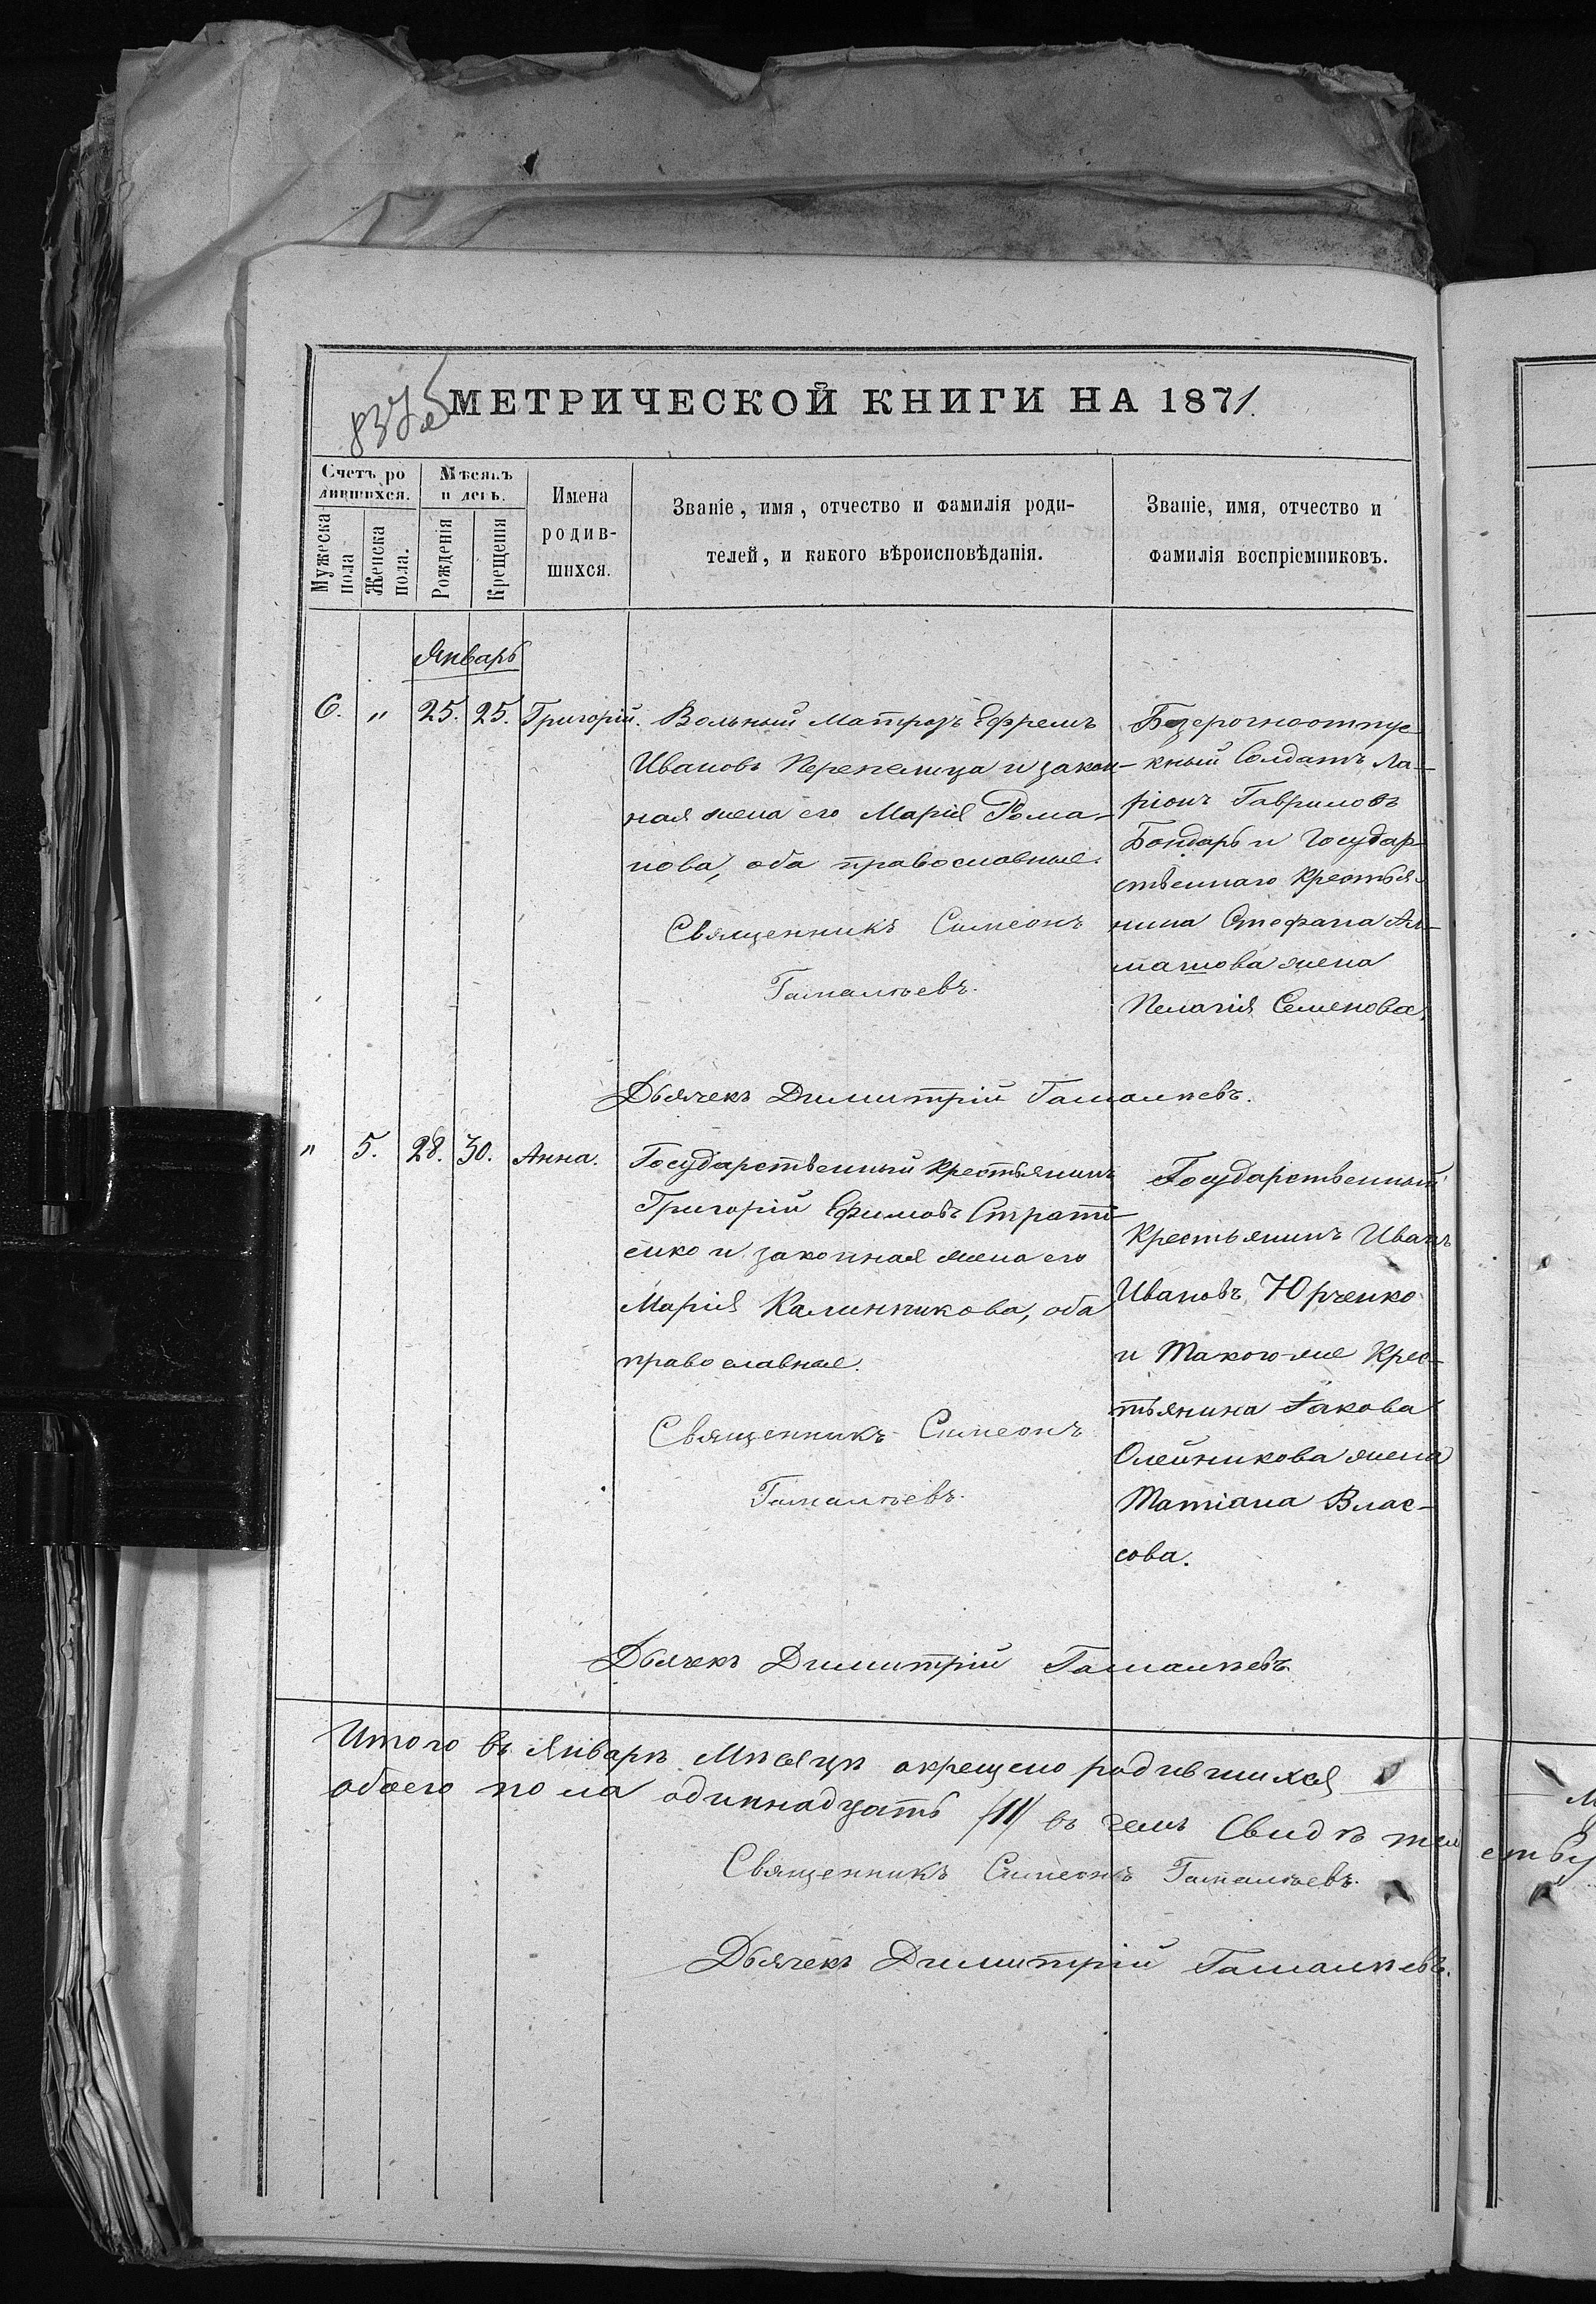 МЕТРИЧЕСКОЙ КНИГИ НА 1871.
Счетъ ро
дившихся.
Мѣсяцъ
и день.
Мужеска
пола
Женска
пола.
Рожденія
Крещенія
Имена
родив-
шихся.
Званіе, имя, отчество и фамилія роди-
телей, и какого вѣроисповѣданія.
Званіе, имя, отчество и
фамилія воспріемниковъ.
Январь
6. " 25. 25. Григорій.
Вольный Матрозъ Ефремъ
Ивановъ Перепелица и закон-
ная жена его Марія Рома-
нова, оба православные.
Священникъ Симеонъ
Гамалѣевъ.
Безсрочноотпус
кный Солдатъ Ла-
ріонъ Гавриловъ
Бондарь и Государ
ственнаго Крестья-
нина Стефана
жена
Пелагія Семенова.
Дьячекъ Димитрій Гамалѣевъ.
" 5. 28. 30. Анна.
Государственный крестьянинъ
Григорій Ефимовъ Страті-
енко и законная жена его
Марія Калинникова, оба
православные.
Священникъ Симеонъ
Гамалѣевъ.
Государственный
Крестьянинъ Иванъ
Ивановъ Юрченко
и такого-же Крес-
тьянина Іакова
Олейникова жена
Татіана Влас-
сова.
Дьячекъ Димитрій Гамалѣевъ.
Итого въ Январѣ Мѣсяцѣ окрещено родившихся
обоего пола одиннадцать /11/ въ чемъ Свидѣтел
Священникъ Симеонъ Гамалѣевъ.
Дьячекъ Димитрій Гамалѣевъ.
ству